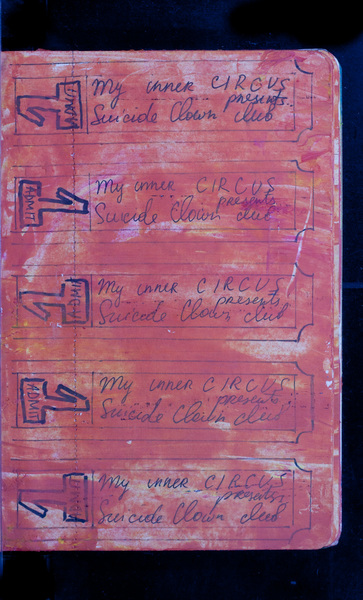 1 ADMIT
My inner CIRCUS
presents:
Suicide Clown club
1 ADMIT
My inner CIRCUS
presents
Suicide Clown club
1 ADMIT
My inner CIRCUS
presents
Suicide Clown club
1 ADMIT
My inner CIRCUS
presents:
Suicide Clown club
1 ADMIT
My inner CIRCUS
presents:
Suicide Clown club